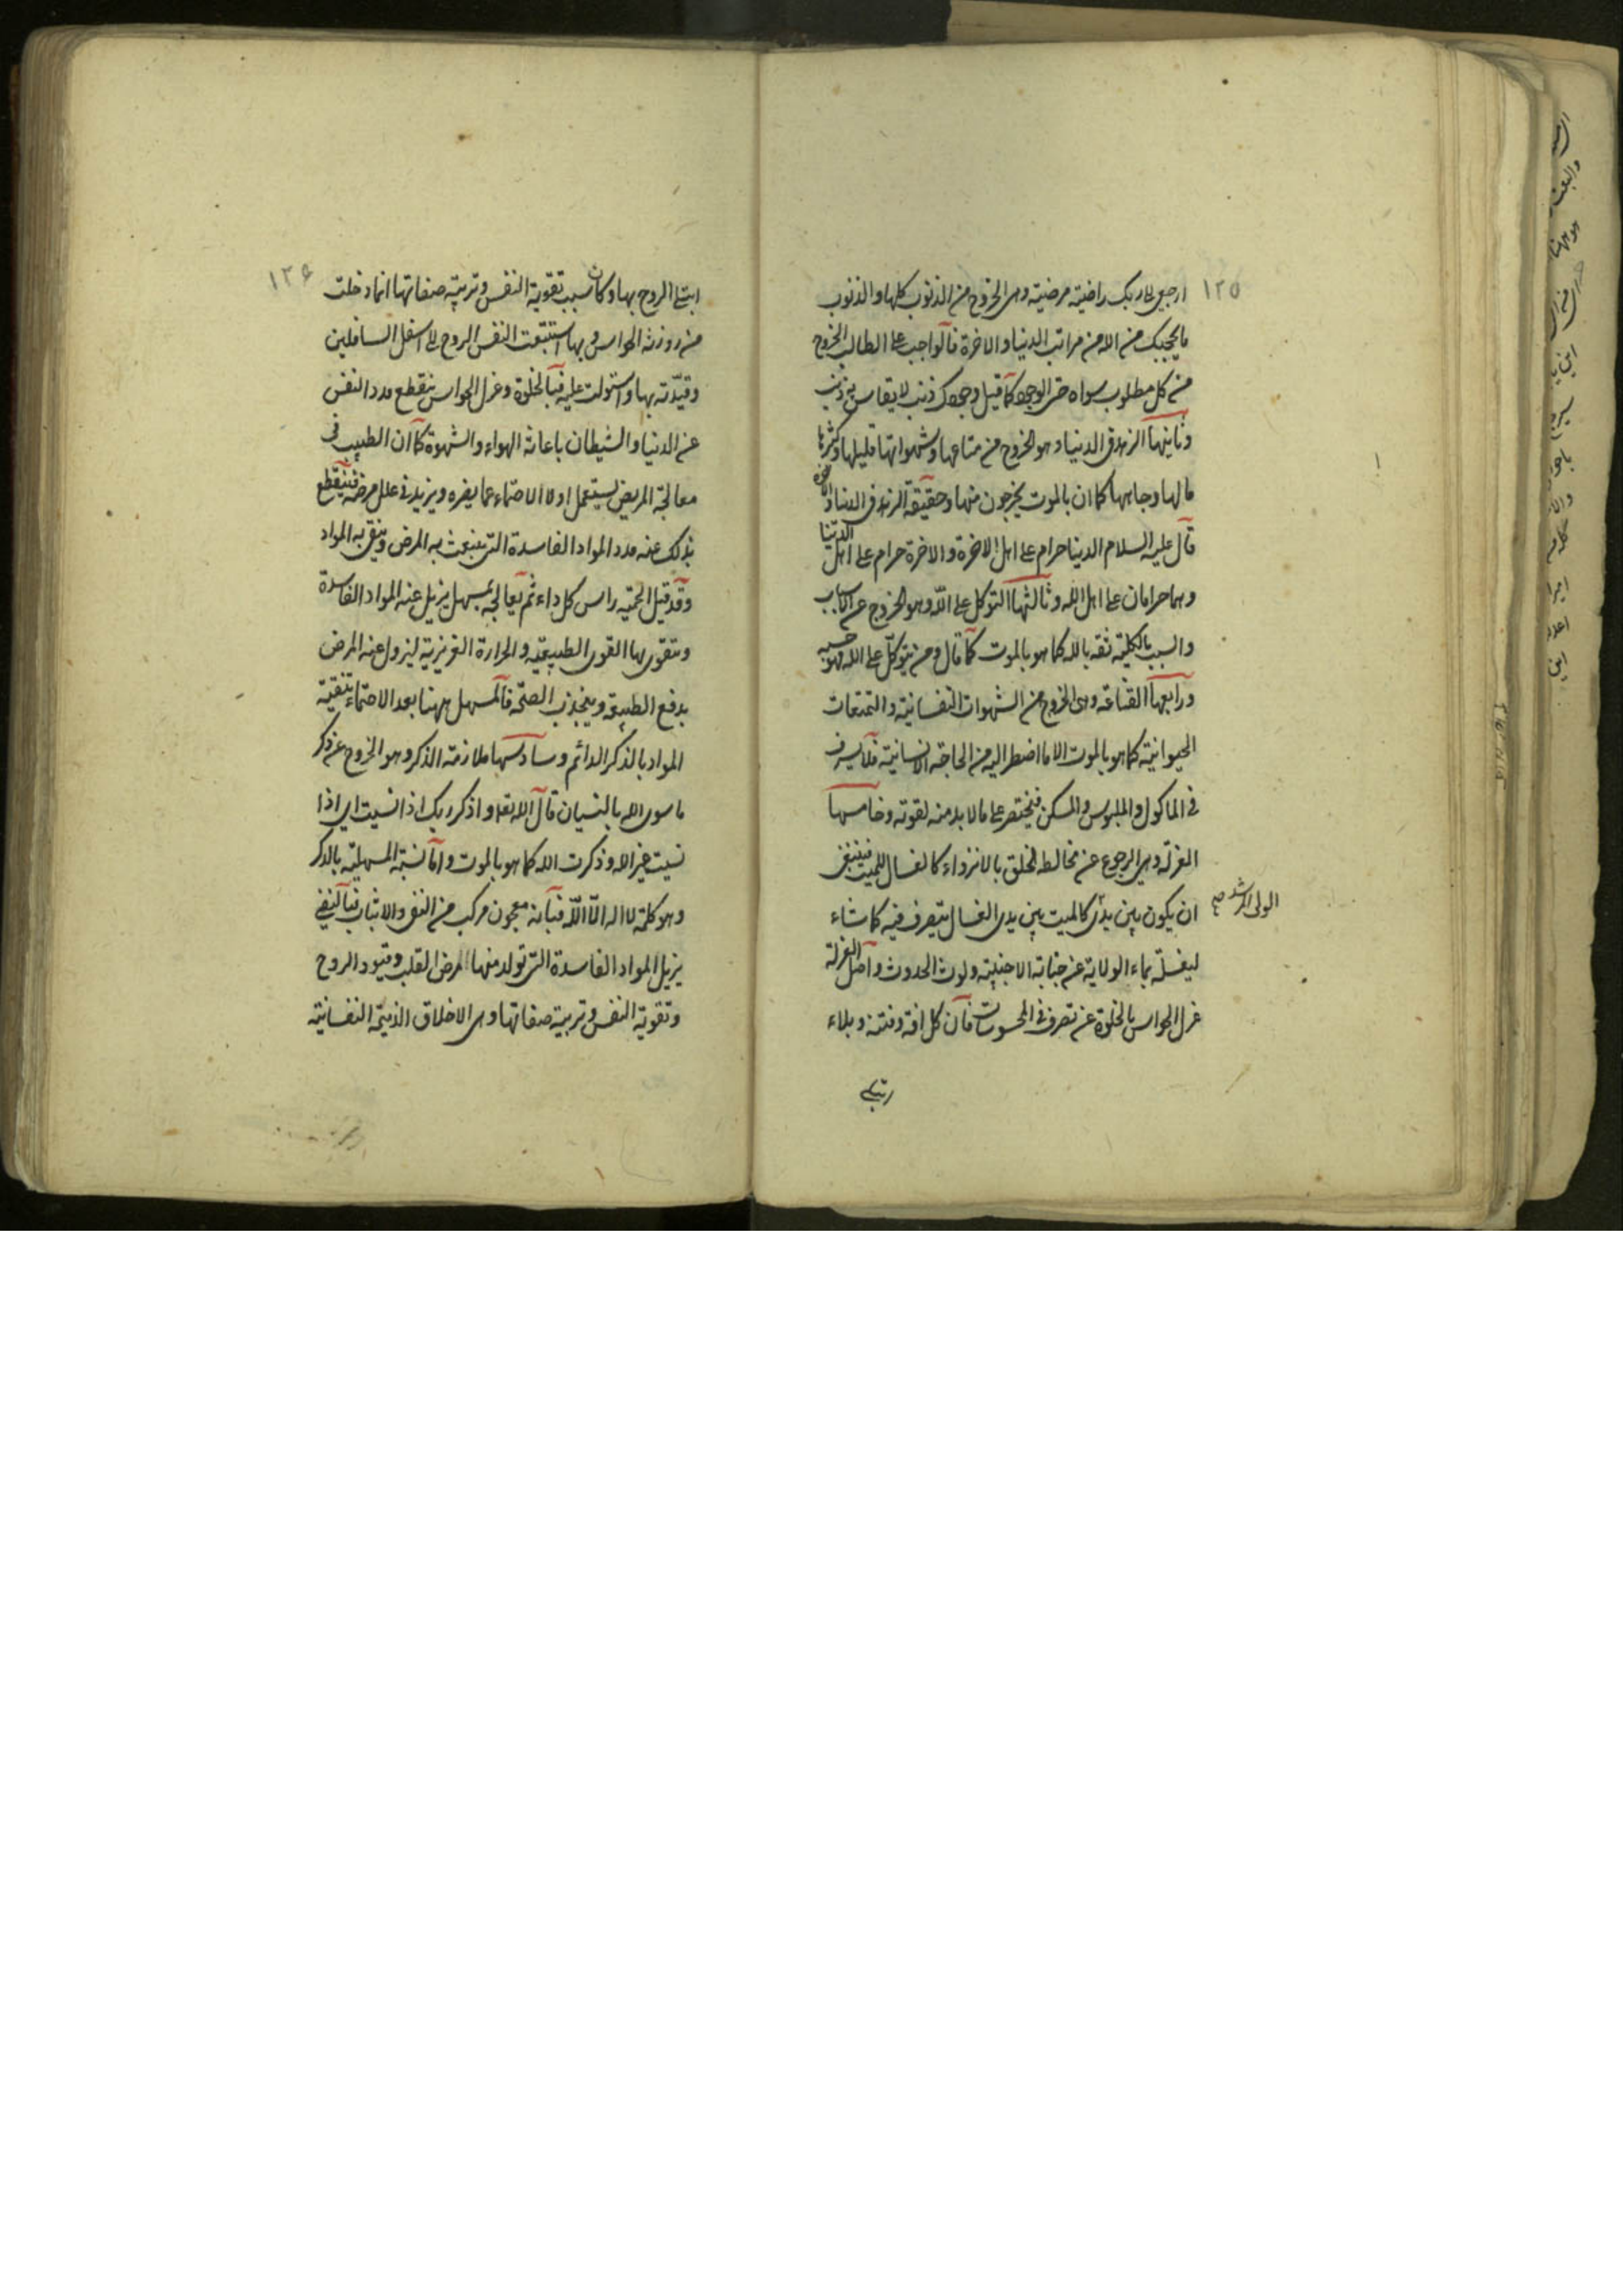 ١٢٥
ارجعي الى ربك راضية مرضية وهى الخروج من الذنوب كلها والذنوب
ما يحجبك من الله من مراتب الدنيا والاخرة فالواجب على الطالب الخروج
من كل مطلوب سواه حتى الوجود كما قيل وجودك ذنب لا يقاس به ذنب
وثانيها الزهد فى الدنيا وهو الخروج من متاعها وشهواتها قليلها وكثيرها
مالها وجاهها كما ان بالموت يخرجون منها وحقيقة الزهد فى الدنيا والاخرة
قال عليه السلام الدنيا حرام على اهل الاخرة والاخرة حرام على اهل الدنيا
وهما حرامان على اهل الله وثالثها التوكل على الله وهو الخروج عن الاسباب
والسبب بالكلية ثقه بالله كما هو بالموت كما قال ومن يتوكل على الله فهو حسبه
ورابعها القناعة وهى الخروج من الشهوات النفسانية والتمتعات
الحيوانية كما هو بالموت الا ما اضطر اليه من الحاجة الانسانية فلا يسرف
فى الماكول والملبوس والمسكن فيختصر على ما لا بد منه لقوته وخامسها
العزلة وهى الرجوع عن مخالطة الخلق بالانزواء كالغسال للميت فينبغى
ان يكون بين يدى كالميت بين يدى الغسال يتصرف فيه كما شاء
الولى المرشد صح
ليغسله بماء الولاية عن جنابة الاجنبية ولوث الحدوث واصل العزلة
عزل الحواس بالخلوة عن تصرف فى المحسوسات فان كل افة وفتنة وبلاء
ابتلى
١٢۶
ابتلى الروح بها وكان سبب تقوية النفس وتربية صفاتها انما دخلت
من روزنة الحواس وبها استتبعت النفس الروح الى اسفل السافلين
وقيدته بها واستولت عليه فبالخلوة وعزل الحواس ينقطع مدد النفس
عن الدنيا والشيطان باعانة الهواء والشهوة كما ان الطبيب فى
معالجة المريض يستعمل اولا الاحتماء عما يضره ويزيد فى علل مرضه فينقطع
بذلك عنه مدد المواد الفاسدة التى ينبعث به المرض وينقى به المواد
وقد قيل الحمية راس كل داء ثم يعالجه بمسهل يزيل عنه المواد الفاسدة
ويتقوى بها القوى الطبيعية والحرارة الغريزية ليزول عنه المرض
بدفع الطبيعة وينجذب الصحة فالمسهل ههنا بعد الاحتماء تنقية
المواد بالذكر الدائم وسادسها ملازمة الذكر وهو الخروج عن ذكر
ما سوى الله بالنسيان قال الله تعلى واذكر ربك اذا نسيت اى اذا
نسيت غير الله وذكرت الله كما هو بالموت واما نسبة المسهلية بالذكر
وهو كلمة لا اله الا الله فبانه معجون مركب من النفى والاثبات فبالنفى
يزيل المواد الفاسدة التى تولد منها المرض القلب وقيود الروح
وتقوية النفس وتربية صفاتها وهى الاخلاق الذميمة النفسانية